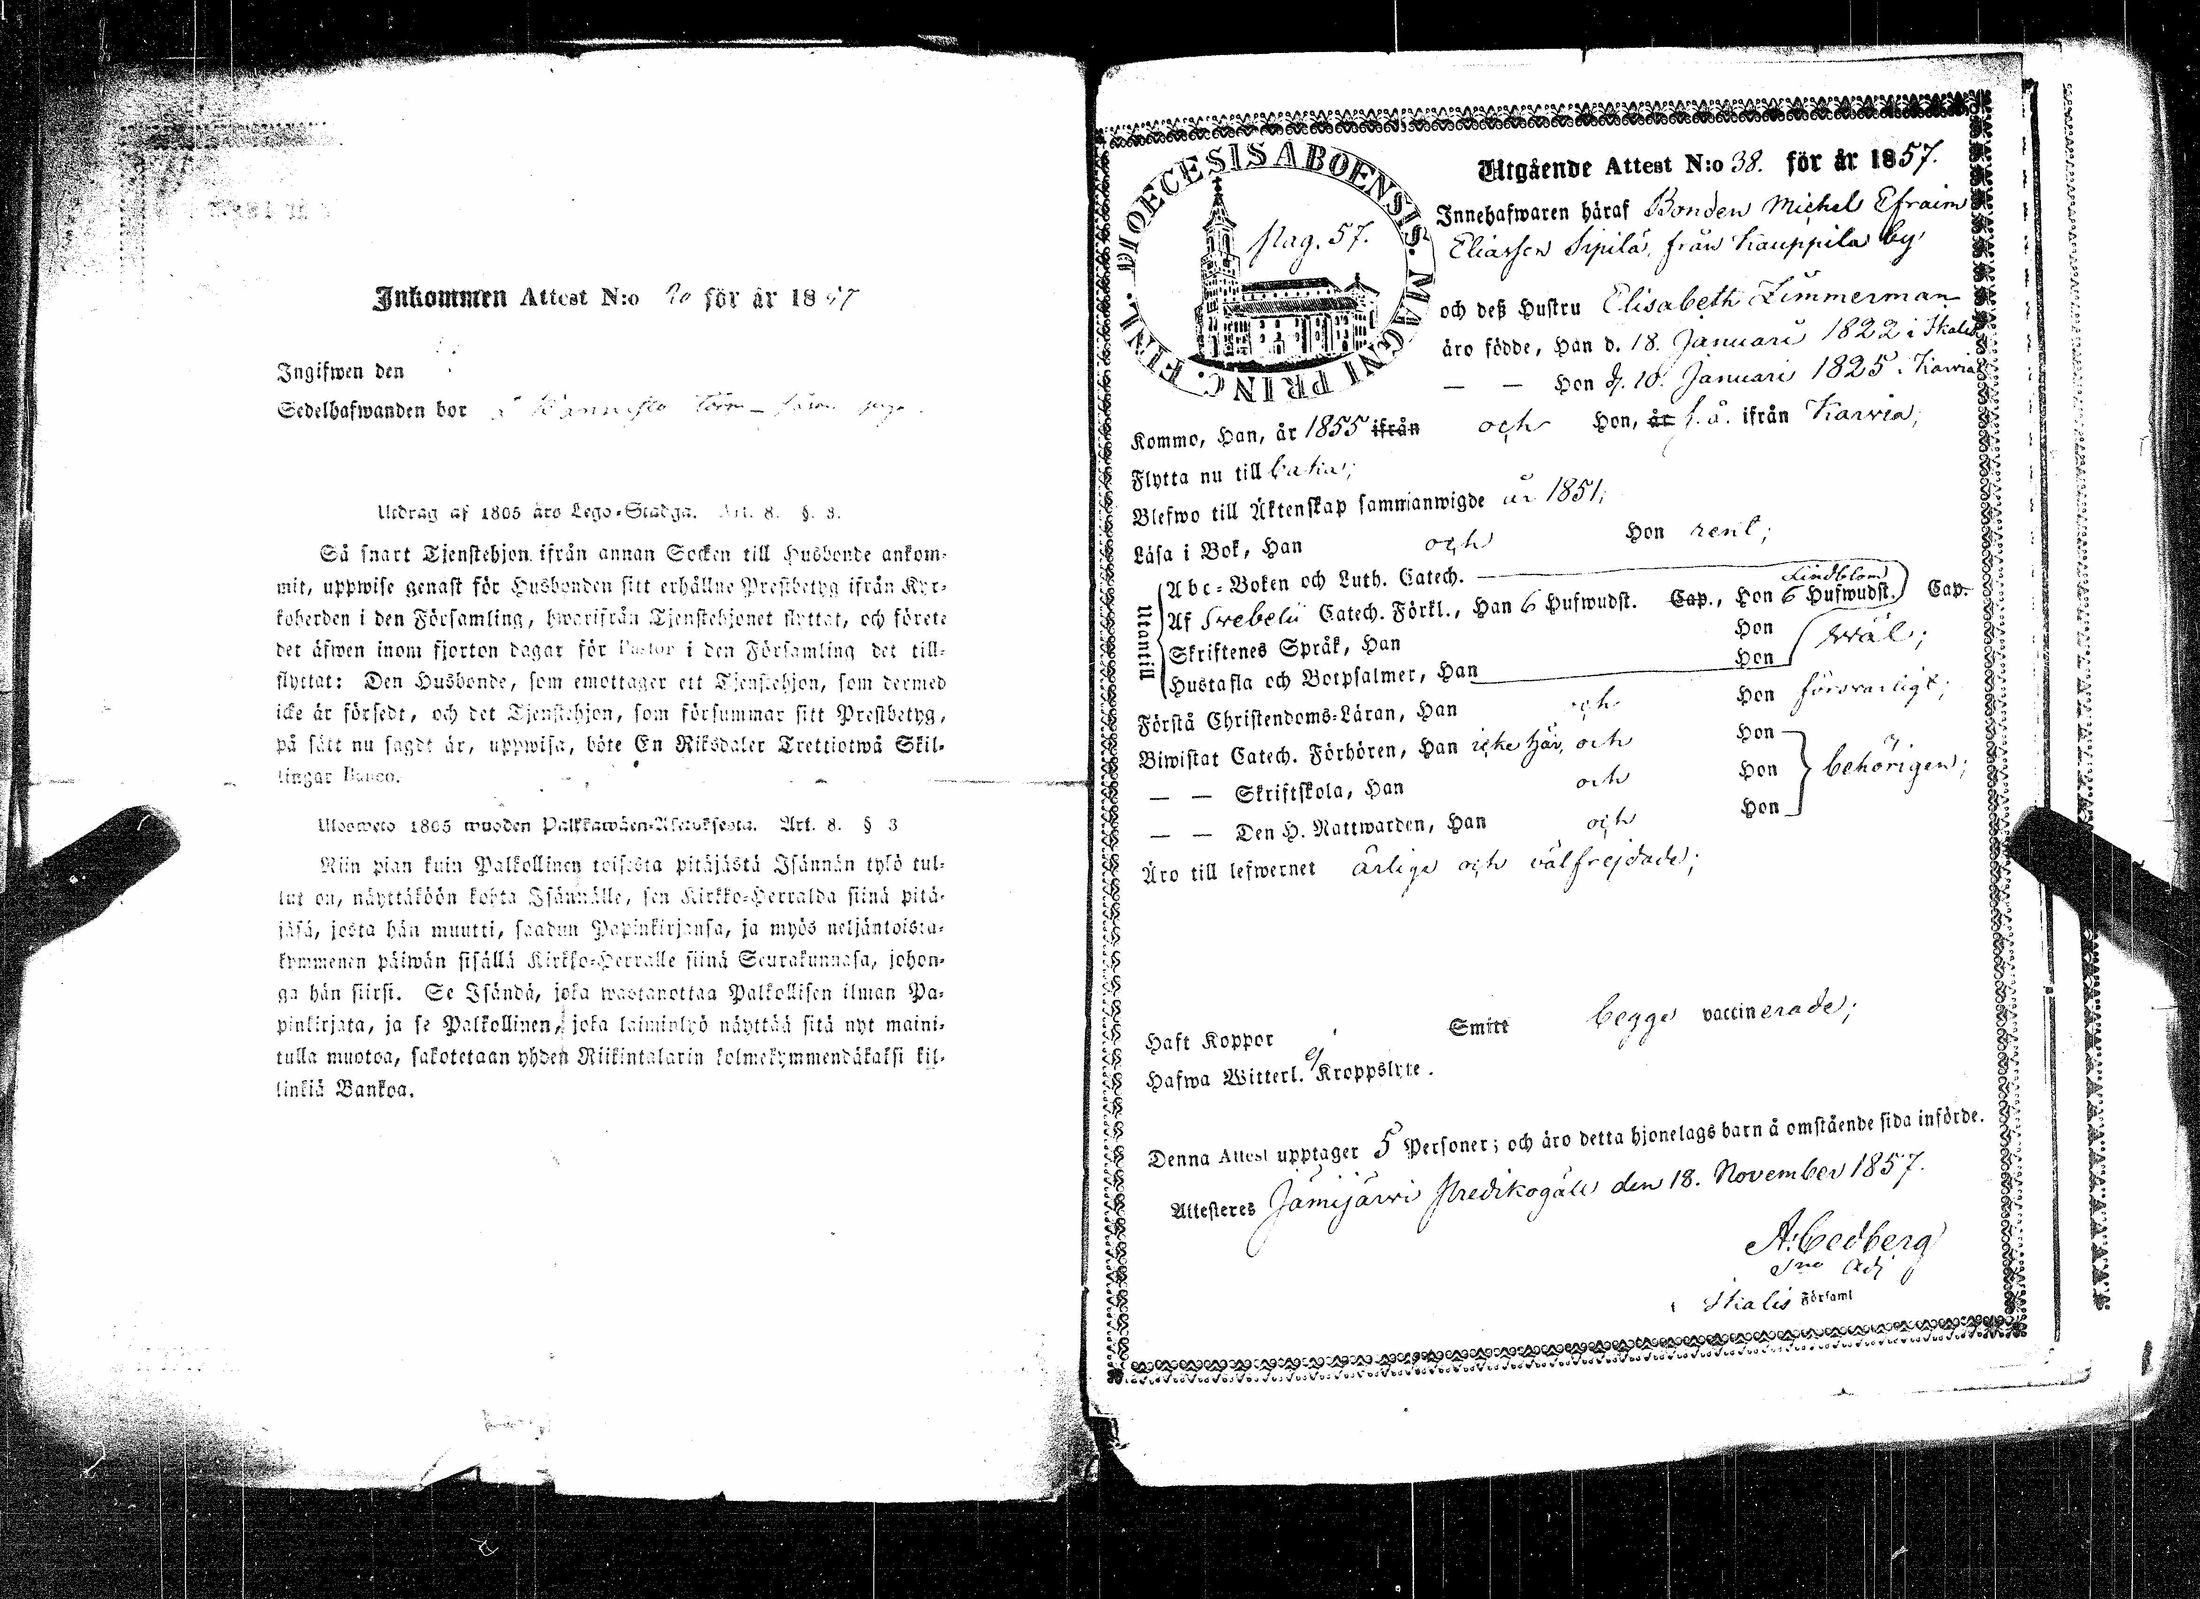 Inkommen Attest N:o 20 för år 1857
Ingifwen den
Sedelhafwanden bor
Utdrag af 1805 års Lego-Stadga. Art. 8. §. 3.
Så snart Tjenstehjon ifrån annan Socken till Husbonde ankom-
mit, uppwise genast för Husbonden sitt erhållne Prestbetyg ifrån Kyr-
koherden i den Församling, hwarifrån Tjenstehjonet flyttat, och förete
det äfwen inom fjorton dagar för Pastor i den Församling det till-
flyttat: Den Husbonde, som emottager ett Tjenstehjon, som dermed
icke är försedt, och det Tjenstehjon, som försummar sitt Prestbetyg,
på sätt nu sagdt är, uppwisa, böte En Riksdaler Trettiotwå Skil-
lingar Banco.
Ulosweto 1805 wuoden Palkkawäen-Asetuksesta. Art. 8. § 3
Niin pian kuin Palkollinen toisesta pitäjästä Isännän tykö tul-
lut on, näyttäköön kohta Isännälle, sen Kirkko-Herralda siinä pitä-
jäsä, josta hän muutti, saadun Papinkirjansa, ja myös neljäntoista-
kymmenen päiwän sisällä Kirkko-Herralle siinä Seurakunnasa, johon-
ga hän siirsi. Se Isändä, joka wastanottaa Palkollisen ilman Pa-
pinkirjata, ja se Palkollinen, joka laiminlyö näyttää sitä nyt maini-
tulla muotoa, sakotetaan yhden Riikintalarin kolmekymmendäkaksi kil-
linkiä Bankoa.
DIOECESIS ABOENSIS. MAGNI PRINC. FINL.
Pag. 57.
Utgående Attest N:o 38. för år 1857.
Innehafwaren häraf Bonden Michel Efraim
Eliasson Sipilä, från Kauppila by
och deß Hustru Elisabeth Zimmerman
äro födde, Han d. 18. Januari 1822 i Ikalis
— — Hon d. 10. Januari 1825 i Karvia
Kommo, Han, år 1855 ifrån och Hon, år s. å. ifrån Karvia;
Flytta nu till
Blefwo till Äktenskap sammanwigde år 1851;
Läsa i Bok, Han och Hon rent;
Utantill
Abc-Boken och Luth. Catech.
Lindblom
Af Svebelii Catech. Förkl., Han 6 Hufwudst. Cap., Hon 6 Hufwudst. Cap.
Skriftenes Språk, Han Hon
Hustafla och Botpsalmer, Han Hon wäl;
Förstå Christendoms-Läran, Han och Hon försvarligt;
Biwistat Catech. Förhören, Han icke här, och Hon
— — Skriftskola, Han och Hon behörigen;
— — Den H. Nattwarden, Han och Hon
Äro till lefwernet ärliga och välfrejdade;
Haft Koppor Smitt begge vaccinerade;
Hafwa Witterl. ej Kroppslyte.
Denna Attest upptager 5 Personer; och äro detta hjonelags barn å omstående sida införde.
Attesteres Jämijärvi Predikogäll den 18. November 1857.
A. Cedberg
Sne Adj
i Ikalis Församl